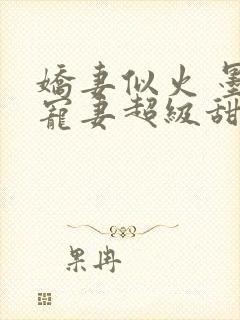 嬌妻似火 墨
寵妻超級甜
果冉